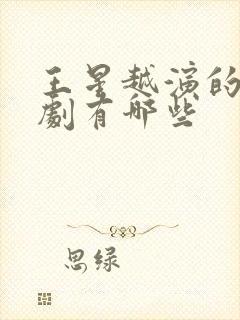 王星越演的
劇有哪些
思绿